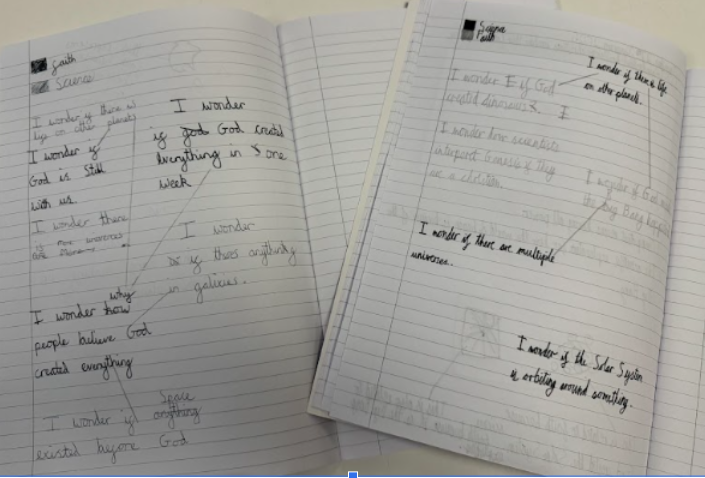 faith
Science
I wonder if there is
life on other planets
I wonder if
God is still
with us.
I wonder there
I wonder
if god God created
everything in one
week
I wonder
if theres anything
in galixies.
why
I wonder how
people believe God
created everything
Space
I wonder if anything
existed before God
Science
Faith
I wonder if there is life
on other planets.
I wonder if God
created dinosaurs
I wonder how scientists
interpret Genesis if they
are a christian.
I wonder if God made
the Big Bang happen
I wonder if there are multiple
universes.
I wonder if the Solar System
is orbiting around something.